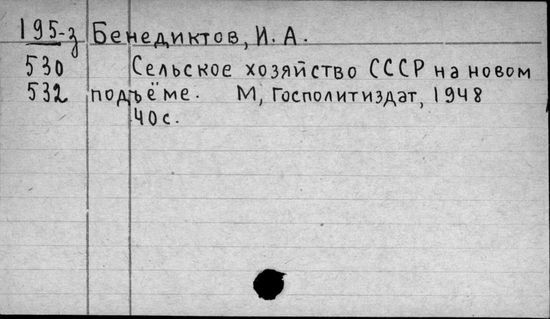 195-з Бенедиктов, И. А.
530 Сельское хозяйство СССР на новом
532 подъёме. М, Госполитиздат, 1948
40с.